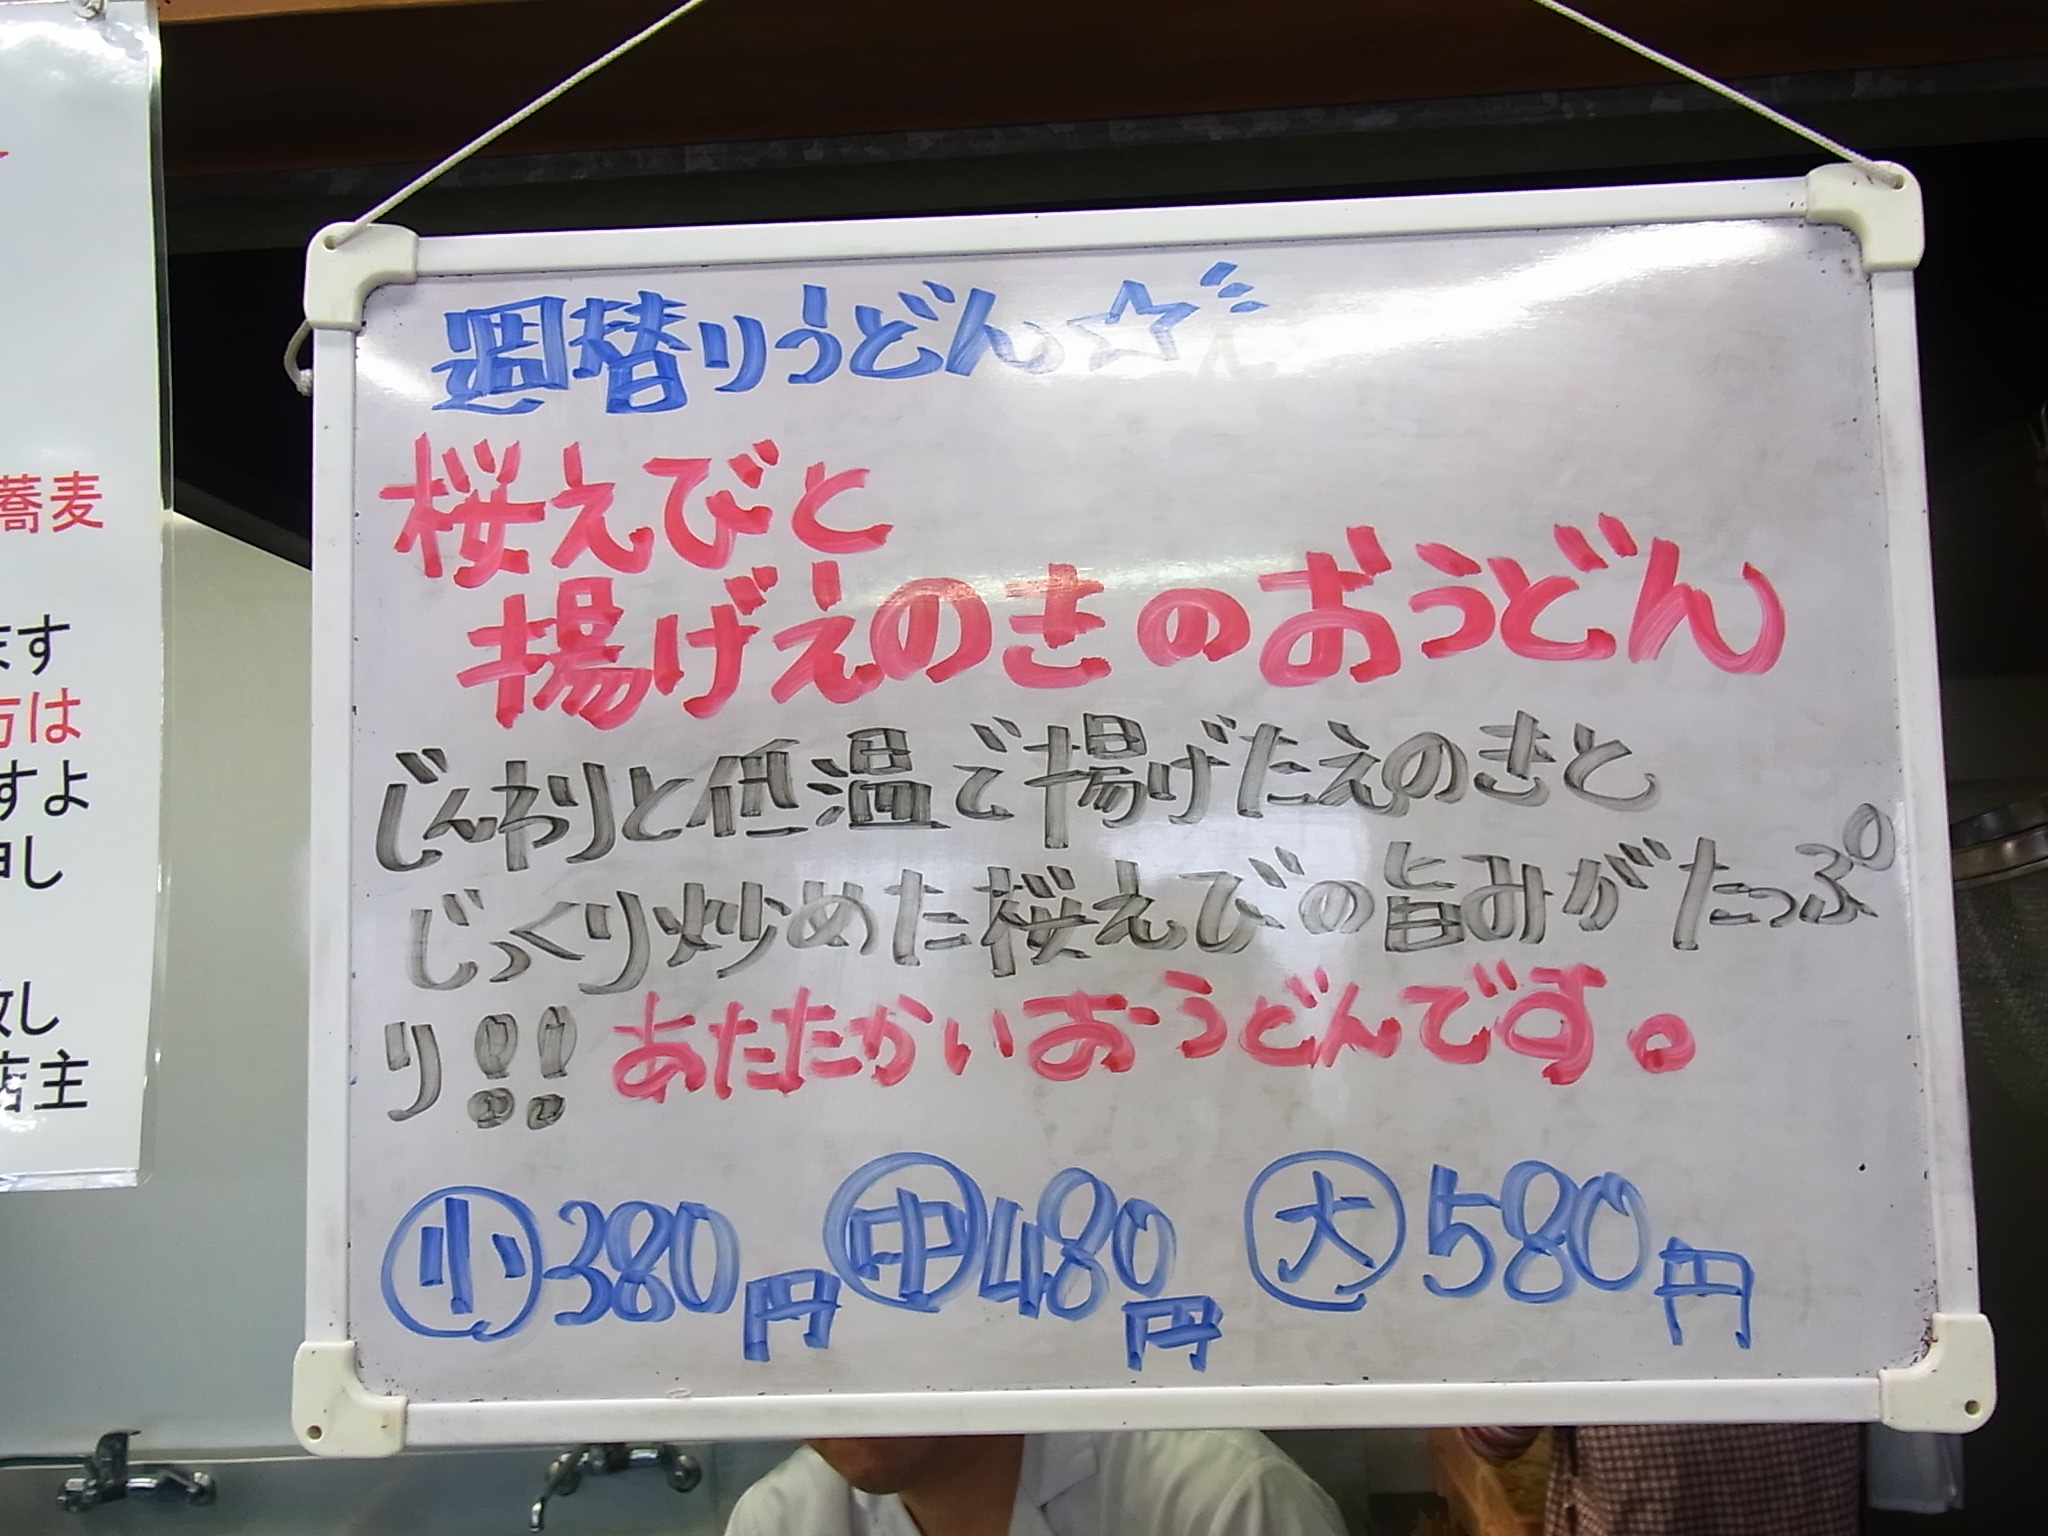 週替りうどん☆
桜えびと
揚げえのきのおうどん
じんわりと低温で揚げたえのきと
じっくり炒めた桜えびの旨みがたっぷ
り!! あたたかいおうどんです。
小 380円 中 480円 大 580円
蕎麦
ます
方は
すよ
申し
致し
店主